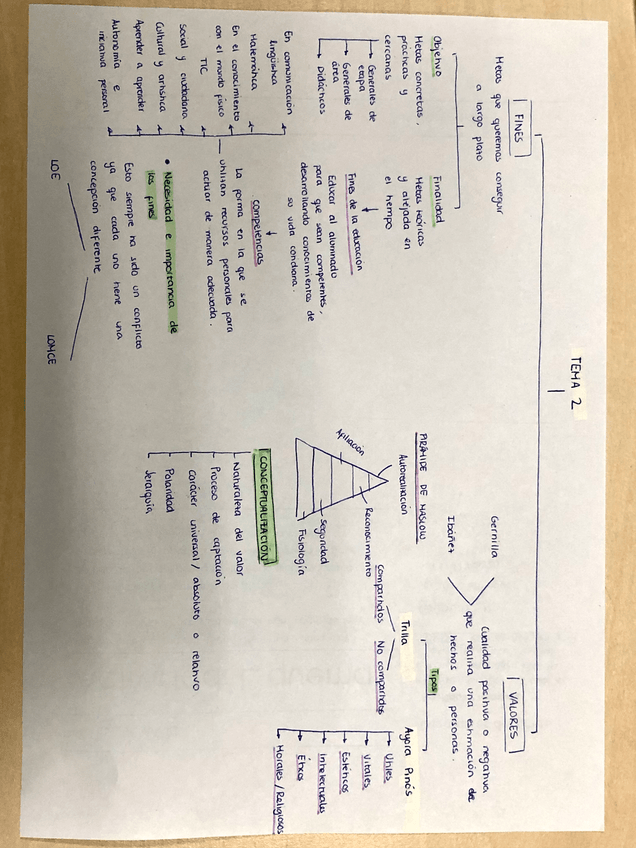 TEMA 2
FINES
Metas que queremos conseguir
a largo plazo
Objetivo
Metas concretas,
prácticas y
cercanas
Generales de
etapa
Generales de
área
Didácticos
Finalidad
Metas teóricas
y alejada en
el tiempo
Fines de la educación
Educar al alumnado
para que sean competentes,
desarrollando conocimientos de
su vida cotidiana.
Competencias
La forma en la que se
utilizan recursos personales para
actuar de manera adecuada.
En comunicación
lingüística
Matemática
En el conocimiento
con el mundo físico
TIC
Social y ciudadana
Cultural y artística
Aprender a aprender
Autonomía e
iniciativa personal
• Necesidad e importancia de
los fines
Esto siempre ha sido un conflicto
ya que cada uno tiene una
concepción diferente
LOE
LOMCE
VALORES
Gervilla
Ibáñez
Cualidad positiva o negativa
que realiza una estimación de
hechos o personas.
PIRÁMIDE DE MASLOW
Autorrealización
Reconocimiento
Afiliación
Seguridad
Fisiología
Tipos
Trilla
Compartidos
No compartidos
Ayora Pinós
Útiles
Vitales
Estéticos
Intelectuales
Éticos
Morales / Religiosos
CONCEPTUALIZACIÓN
Naturaleza del valor
Proceso de captación
Carácter universal / absoluto o relativo
Polaridad
Jerarquía